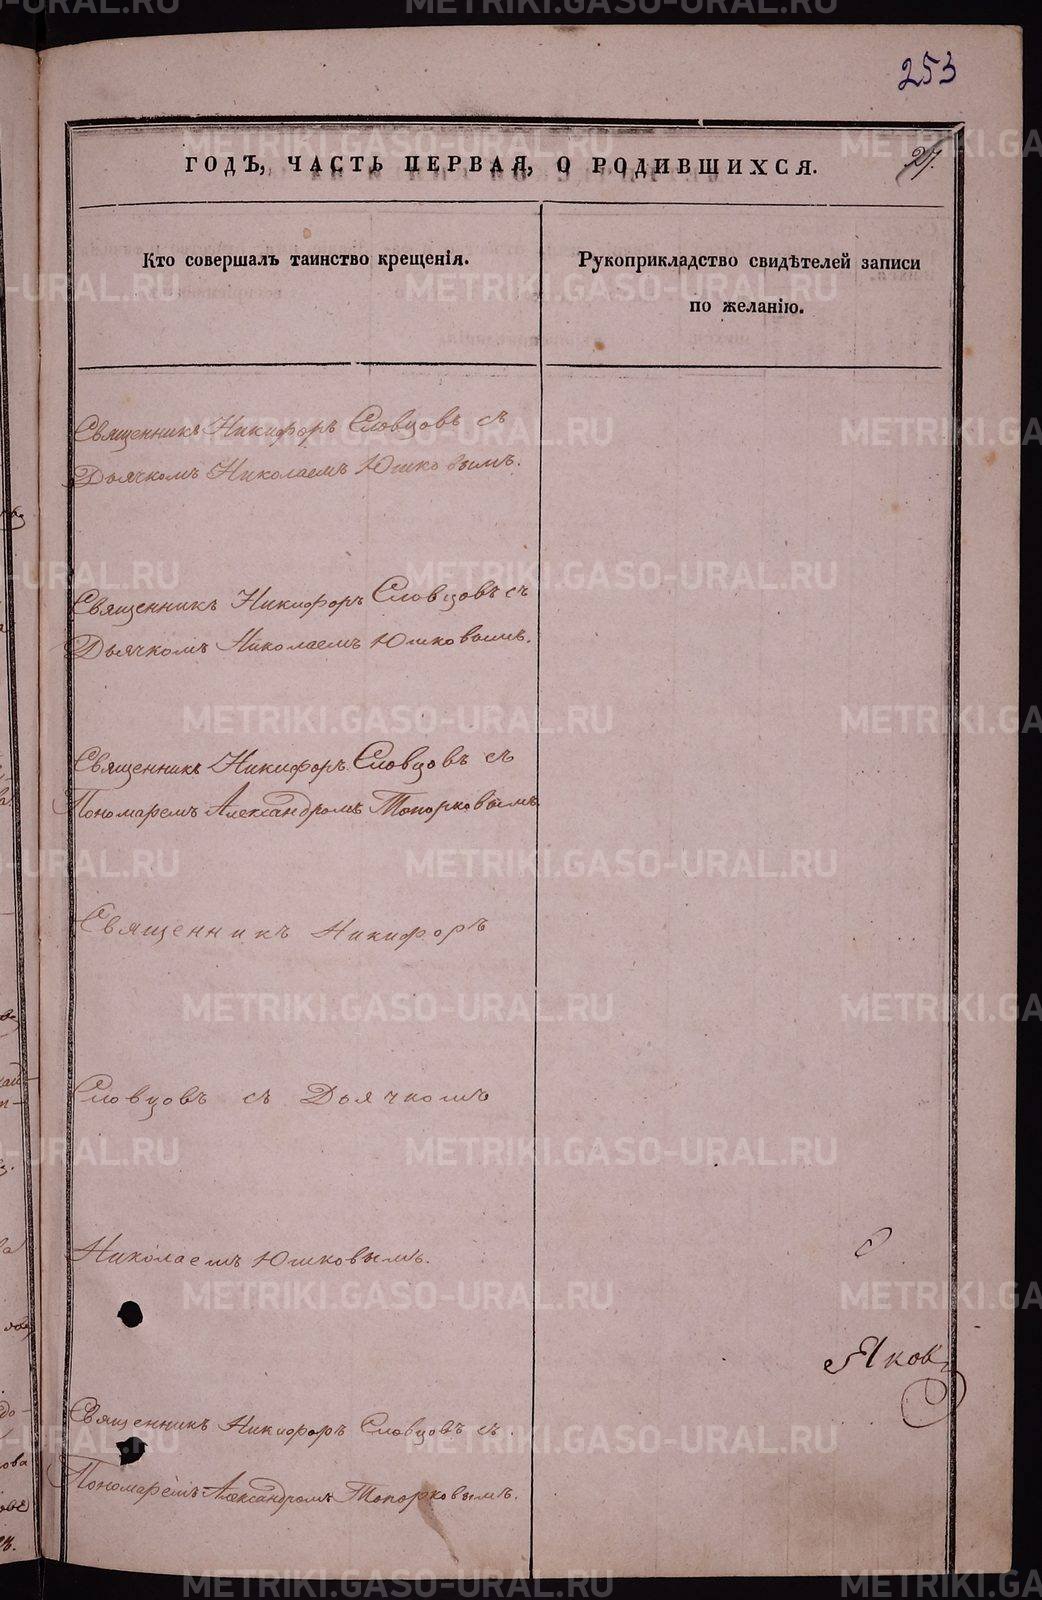 253
27.
ГОДЪ, ЧАСТЬ ПЕРВАЯ, О РОДИВШИХСЯ.
Кто совершалъ таинство крещенія.
Рукоприкладство свидѣтелей записи
по желанію.
Священникъ Никифоръ Словцовъ съ
Дьячкомъ Николаемъ Юшковымъ.
Священникъ Никифоръ Словцовъ съ
Дьячкомъ Николаемъ Юшковымъ.
Священникъ Никифоръ Словцовъ съ
Пономаремъ Александромъ Топорковымъ
Священникъ Никифоръ
Словцовъ съ Дьячкомъ
Николаемъ Юшковымъ.
Яковъ
Священникъ Никифоръ Словцовъ съ
Пономаремъ Александромъ Топорковымъ.
METRIKI.GASO-URAL.RU